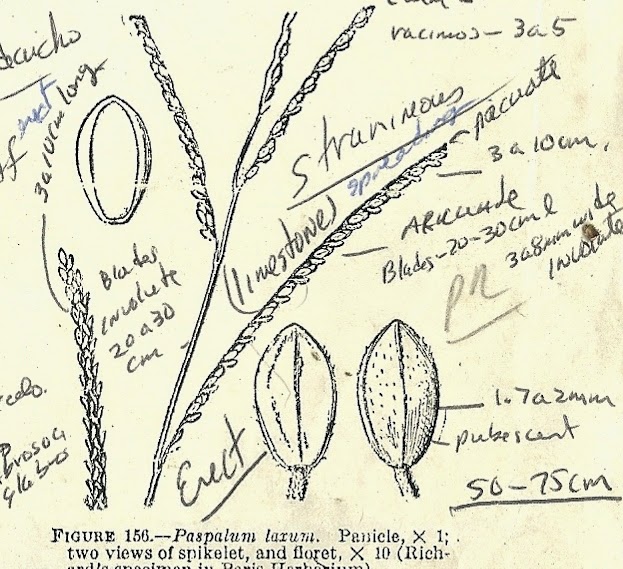 racimos - 3 a 5
3 a 10cm long
straminous
spreading
Arcuate
3 a 10cm.
(limestone)
Arcuade
Blades - 20-30cm l
3a8mm wide
Involute
Blades
involute
20 a 30
cm
PR
1.7a2mm
pubescent
Erect
50-75cm
glabros
FIGURE 156.—Paspalum laxum. Panicle, × 1;
two views of spikelet, and floret, × 10 (Rich-
ard's specimen in Paris Herbarium)